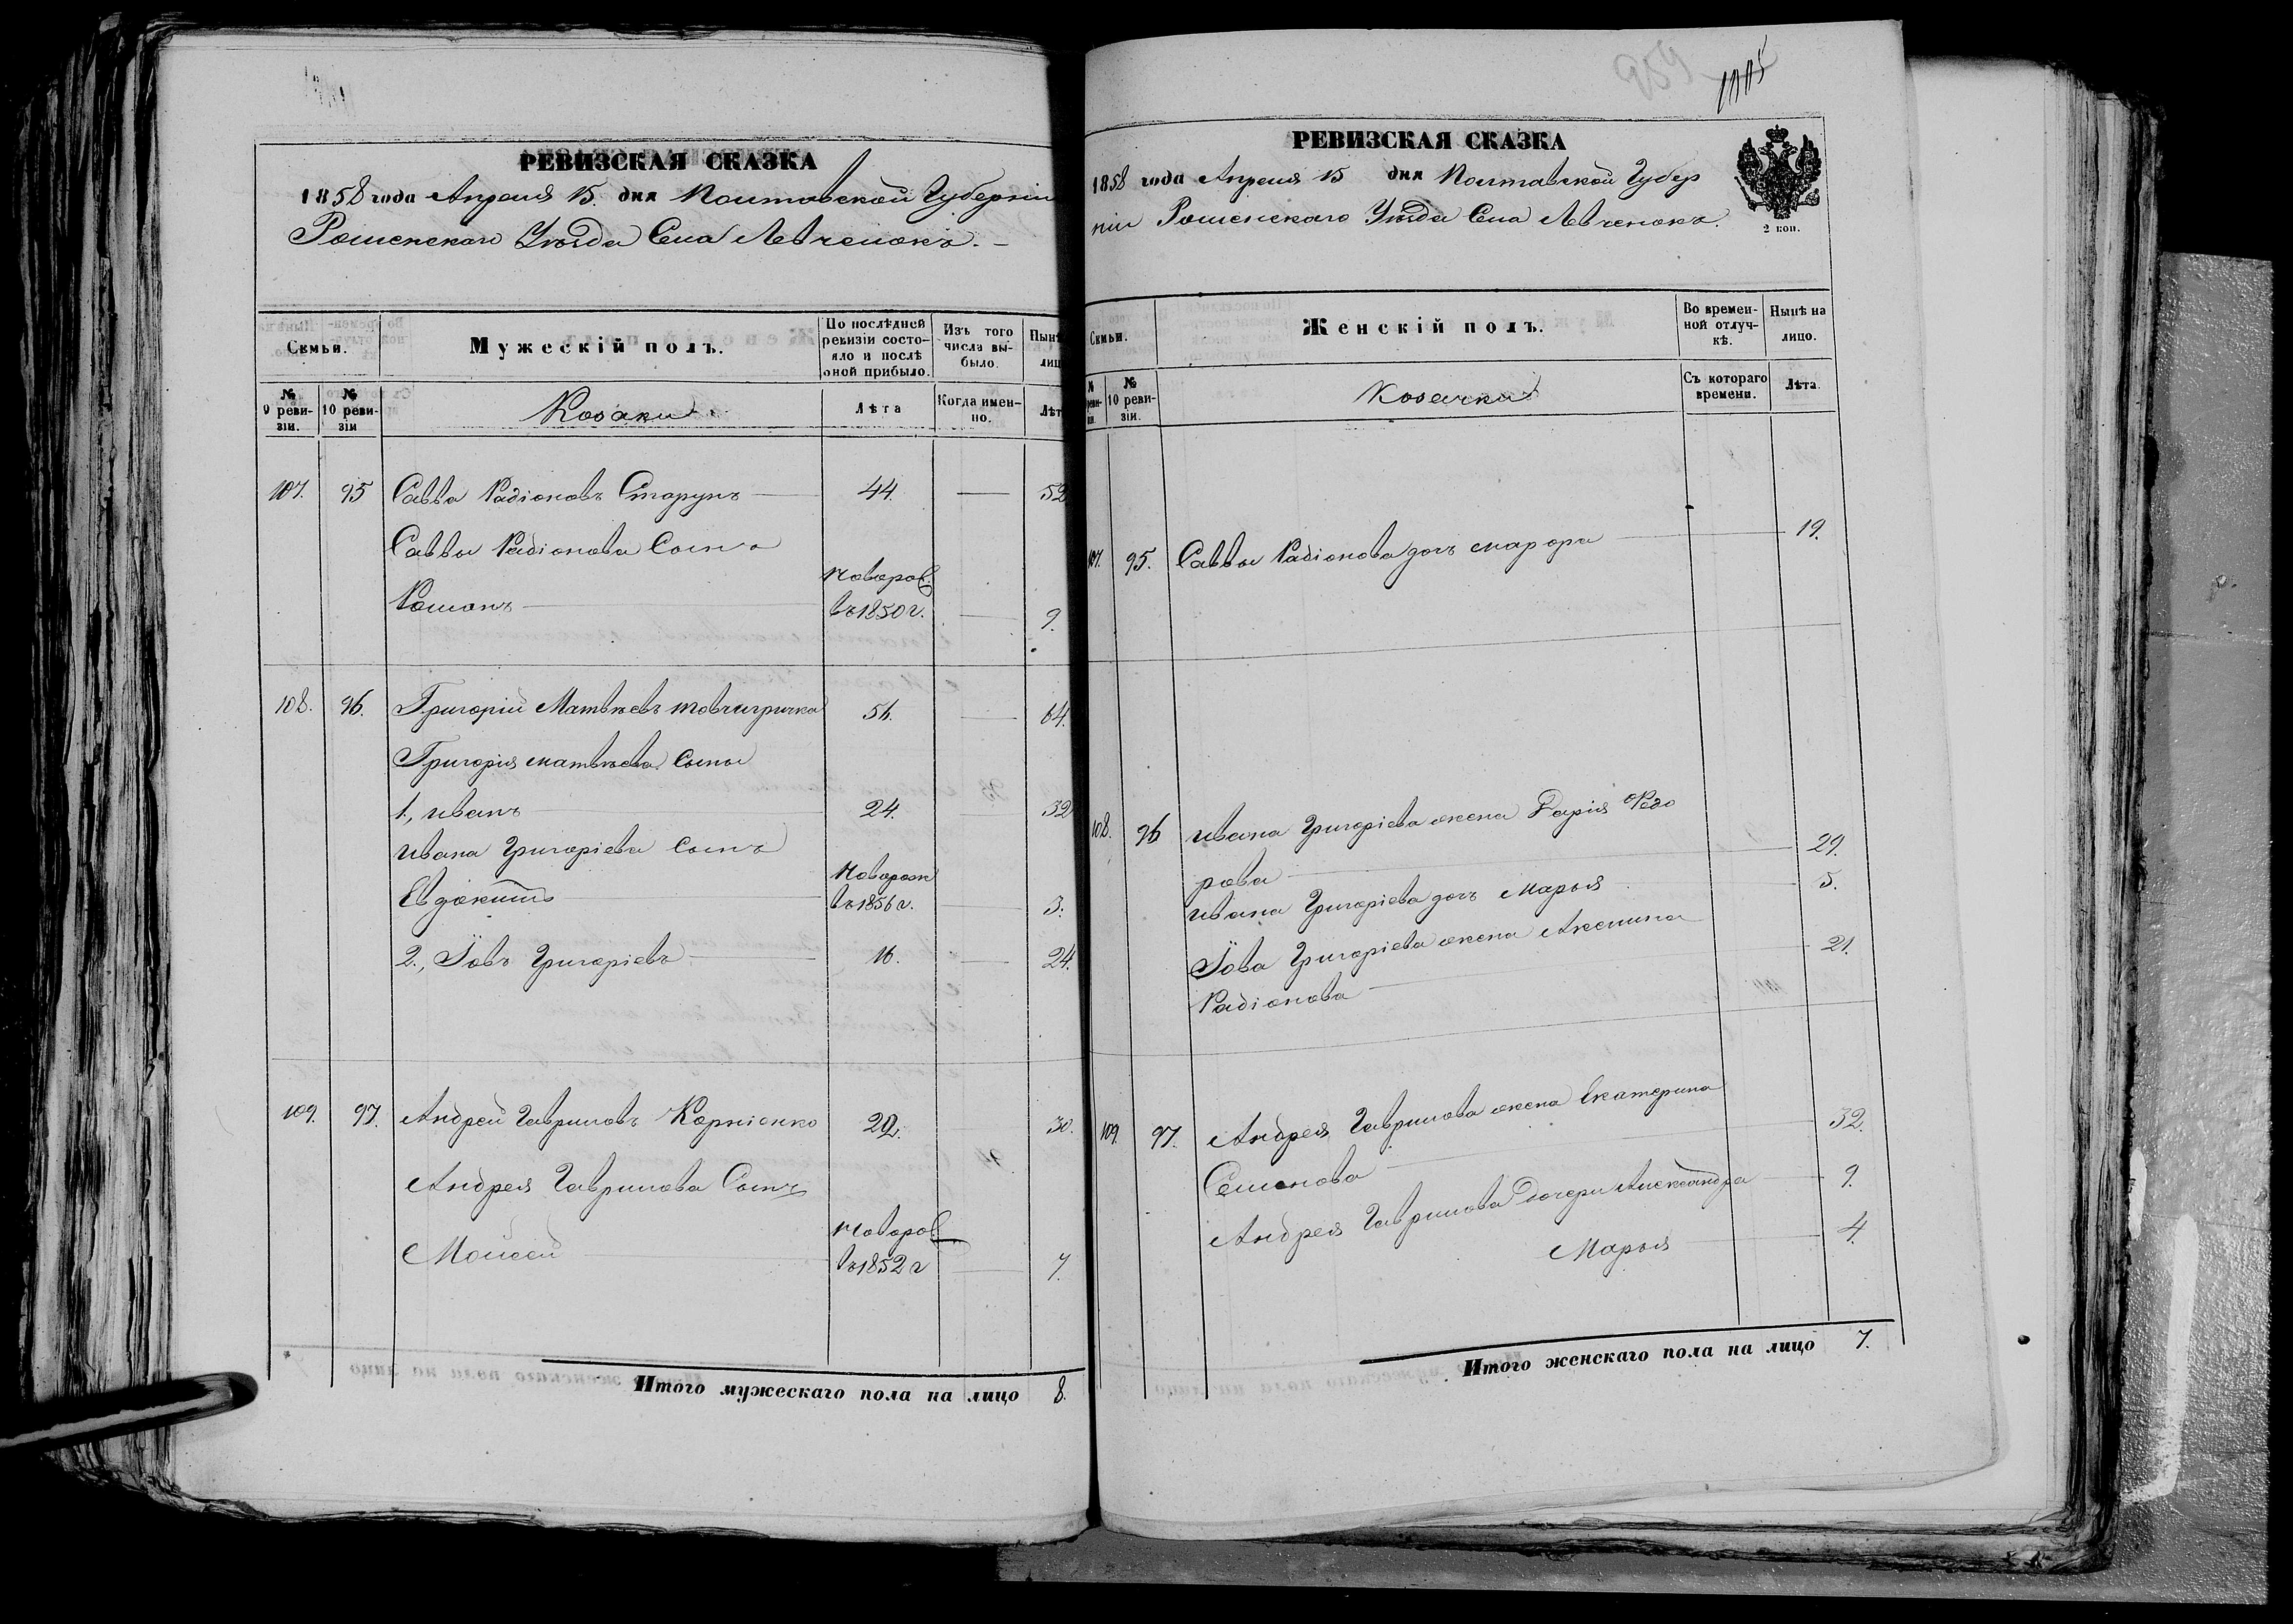 РЕВИЗСКАЯ СКАЗКА
1858 года Апреля 15. дня Полтавской Губерніи
Роменскаго Уѣзда Села Левченокъ. –
Семьи.
Мужескій полъ.
По послѣдней ревизіи состояло и послѣ оной прибыло.
Изъ того числа выбыло.
Нынѣ лиц
№ 9 ревизіи.
№ 10 ревизіи
Козаки
Лѣта
Когда именно.
Лѣт
107. 95 Савва Радіоновъ Старунъ 44. — 52
Саввы Радіонова Сынъ
Романъ Новорож. въ 1850 г. — 9.
108. 96. Григорій Матвѣевъ 56. — 64.
Григорія Матвѣева Сыны
1, Иванъ 24. — 32
Ивана Григоріева Сынъ
Евдокимъ Новорож въ 1856 г. — 3.
2., Іовъ Григоріевъ 16. — 24.
109. 97. Андрей Гавриловъ Корніенко 22. 30.
Андрея Гаврилова Сынъ
Моисей Новорож. въ 1852 г — 7.
Итого мужескаго пола на лицо 8.
959
1005
РЕВИЗСКАЯ СКАЗКА
1858 года Апреля 15 дня Полтавской Губер
ніи Роменскаго Уѣзда Села Левченокъ.
2 коп.
Семьи.
Женскій полъ.
Во временной отлучкѣ.
Нынѣ на лицо.
№ 10 ревизіи.
Козачки
Съ котораго времени.
Лѣта.
107. 95. Саввы Радіонова дочь Марфа — 19.
108. 96 Ивана Григоріева жена Дарія Федо
рова — 29.
Ивана Григоріева дочь Марья — 5.
Іова Григоріева жена Акелина
Радіонова — 21.
109. 97. Андрея Гаврилова жена Екатерина
Семенова — 32.
Андрея Гаврилова Дочери Александра — 9.
Марья — 4.
Итого женскаго пола на лицо 7.